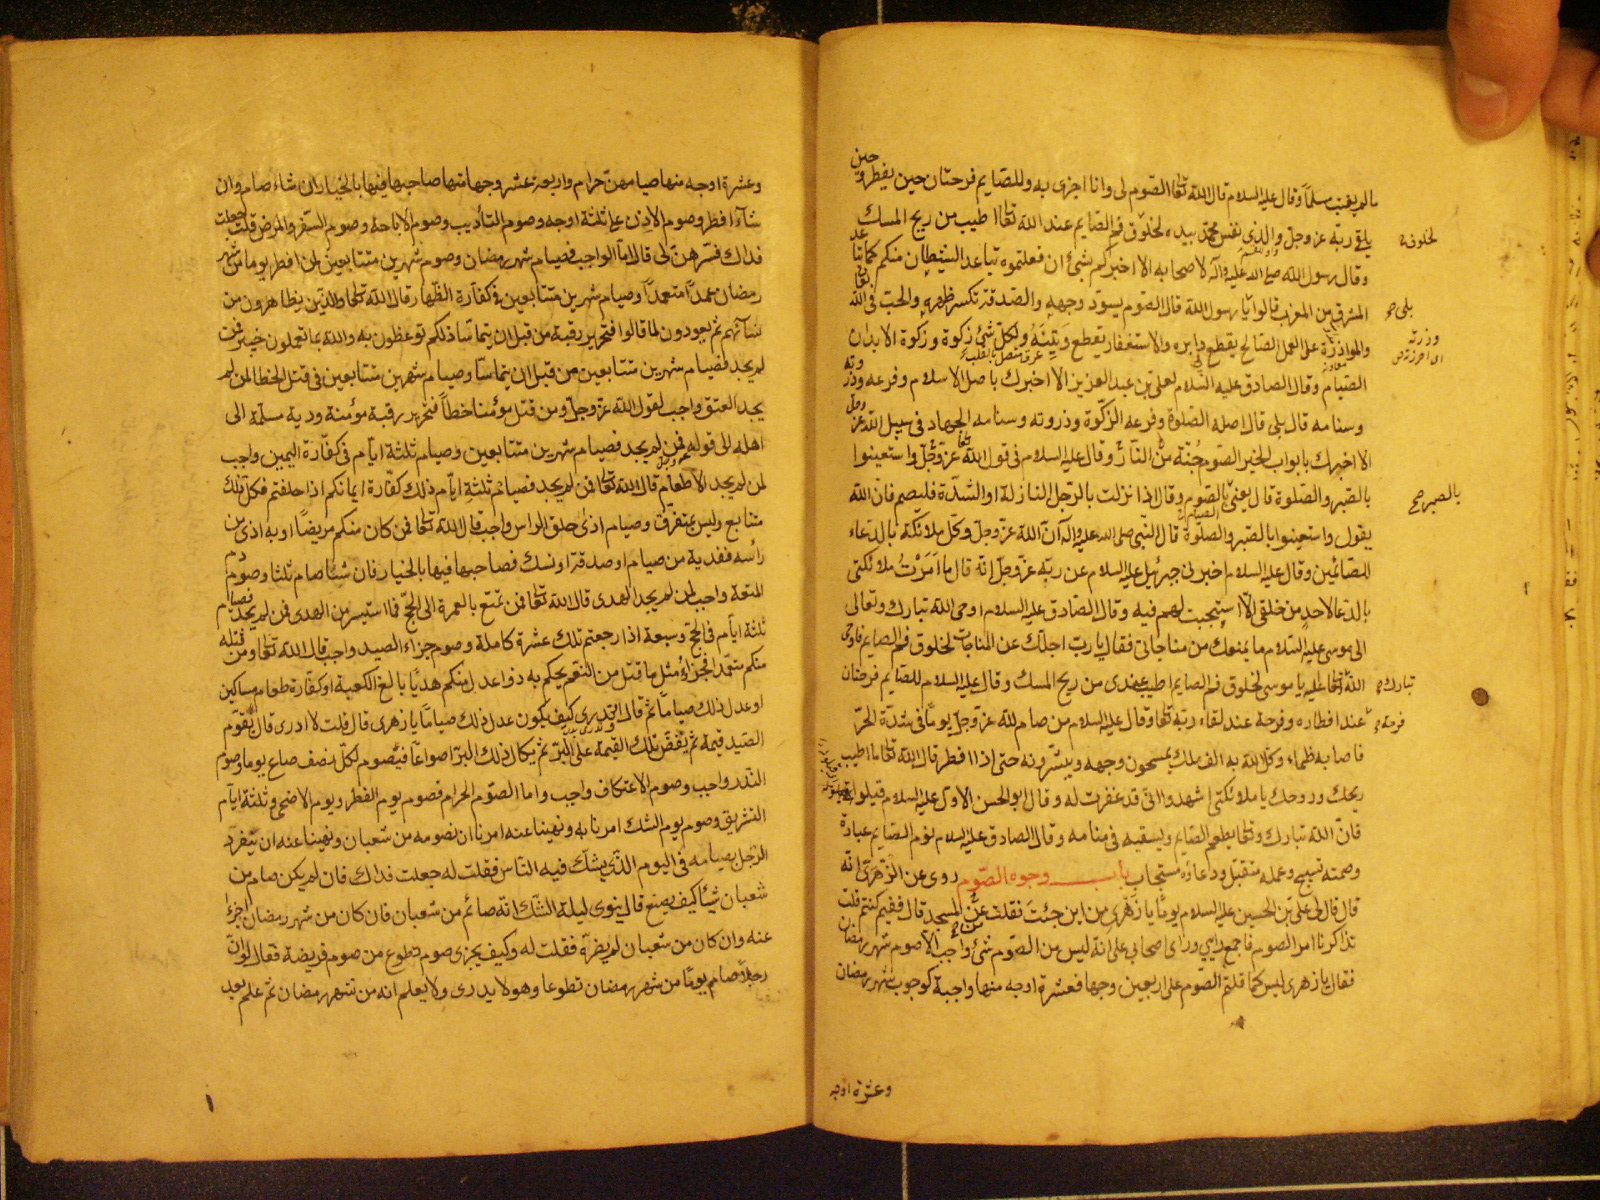 ما لم يغتب مسلماً وقال عليه السلام قال الله تعالى الصوم لى وانا اجزى به وللصايم فرحتان حين يفطر وحين
يلقى ربه عز وجل والذى نفس محمد بيده لخلوق فم الصايم عند الله تعالى اطيب من ريح المسك
وقال رسول الله صلى الله عليه وآله لاصحابه الا اخبركم بشئ ان فعلتموه تباعد الشيطان منكم كما تباعد
المشرق من المغرب قالوا يا رسول الله قال الصوم يسوّد وجهه والصدقة تكسر ظهره والحب فى الله
والموازرة على العمل الصالح يقطع دابره والاستغفار يقطع وتينه ولكل شئ زكوة وزكوة الابدان
الصيام وقال الصادق عليه السلام لعلى بن عبد العزيز الا اخبرك باصل الاسلام وفرعه وذروته
وسنامه قال بلى قال اصله الصلوة وفرعه الزكوة وذروته وسنامه الجهاد فى سبيل الله عز وجل
الا اخبرك بابواب الخير الصوم جُنّة من النار وقال عليه السلام فى قول الله عز وجل واستعينوا
بالصبر والصلوة قال يعنى بالصبر الصوم وقال اذا نزلت بالرجل النازلة او الشدّة فليصم فان الله
يقول واستعينوا بالصبر والصلوة قال النبى صلى الله عليه وآله ان الله عز وجل وكل ملائكة بالدعاء
للصائمين وقال عليه السلام اخبرنى جبرئيل عليه السلام عن ربه عز وجل انه قال ما اَمَرْتُ ملائكتى
بالدعا لاحد من خلقى الّا استجبت لهم فيه وقال الصادق عليه السلام اوحى الله تبارك وتعالى
الى موسى عليه السلام ما يمنعك من مناجاتى فقال يا رب اجلّك عن المناجات لخلوق فم الصايم فاوحى
الله تعالى اليه يا موسى لخلوق فم الصايم اطيب عندى من ريح المسك وقال عليه السلام للصايم فرحتان
عند افطاره وفرحة عند لقاء ربه تعالى وقال عليه السلام من صام لله عز وجل يوماً فى شدة الحرّ
فاصابه ظماء وكّل الله به الف ملك يمسحون وجهه ويبشرونه حتى اذا افطر قال الله تعالى ما اطيب
ريحك وروحك يا ملائكتى اشهدوا انّى قد غفرت له وقال ابو الحسن الاول عليه السلام قيلوا
فانّ الله تبارك وتعالى يطعم الصايم ويسقيه فى منامه وقال الصادق عليه السلام نوم الصايم عبادة
وصمته تسبيح وعمله متقبل ودعاؤه مستجاب باب وجوه الصوم روى عن الزهرى انه
قال قال لى على بن الحسين عليه السلام يوماً يا زهرى من اين جئت فقلت من المسجد قال ففيم كنتم قلت
تذاكرنا امر الصوم فاجمع رايى وراى اصحابى على انه ليس من الصوم شئ واجب الا صوم شهر رمضان
فقال يا زهرى ليس كما قلتم الصوم على اربعين وجها فعشرة اوجه منها واجبة كوجوب شهر رمضان
وعشرة اوجه
بالصبر
فرحة
وعشرة اوجه منها صيامهن حرام واربعة عشر وجها منها صاحبها فيها بالخيار ان شاء صام وان
شاء افطر وصوم الاذن على ثلثة اوجه وصوم التأديب وصوم الاباحة وصوم السفر والمرض قلت جعلت
فداك فسّرهن لى قال امّا الواجب فصيام شهر رمضان وصوم شهرين متتابعين لمن افطر يوما من شهر
رمضان عمداً متعمداً وصيام شهرين متتابعين فى كفّارة الظهار قال الله تعالى والذين يظاهرون من
نسائهم ثم يعودون لما قالوا فتحرير رقبة من قبل ان يتماسّا ذلكم توعظون به والله بما تعملون خبير فمن
لم يجد فصيام شهرين متتابعين من قبل ان يتماسّا وصيام شهرين متتابعين فى قتل الخطا لمن لم
يجد العتق واجب لقول الله عز وجل ومن قتل مؤمنا خطأً فتحرير رقبة مؤمنة ودية مسلّمة الى
اهله الى قوله فمن لم يجد فصيام شهرين متتابعين وصيام ثلثة ايّام فى كفّارة اليمين واجب
لمن لم يجد الاطعام قال الله تعالى فمن لم يجد فصيام ثلثة ايّام ذلك كفّارة ايمانكم اذا حلفتم فكل ذلك
متتابع وليس بمتفرق وصيام اذى حلق الراس واجب قال الله تعالى فمن كان منكم مريضاً او به اذى من
رأسه ففدية من صيام او صدقة او نسك فصاحبها فيها بالخيار فان شاء صام ثلثا وصوم دم
المتعة واجب لمن لم يجد الهدى قال الله تعالى فمن تمتع بالعمرة الى الحجّ فما استيسر من الهدى فمن لم يجد فصيام
ثلثة ايّام فى الحج وسبعة اذا رجعتم تلك عشرة كاملة وصوم جزاء الصيد واجب قال الله تعالى ومن قتله
منكم متعمّداً فجزاءُ مثل ما قتل من النعم يحكم به ذوا عدل منكم هدياً بالغ الكعبة او كفّارة طعام مساكين
او عدل ذلك صياماً ثم قال اتدرى كيف يكون عدل ذلك صياماً يا زهرى قال قلت لا ادرى قال يقوّم
الصيد قيمة ثم تفضّ تلك القيمة على البرّ ثم يكال ذلك البرّ اصواعاً فيصوم لكلّ نصف صاع يوما وصوم
النذر واجب وصوم الاعتكاف واجب واما الصوم الحرام فصوم يوم الفطر ويوم الاضحى وثلثة ايّام
التشريق وصوم يوم الشك امرنا به ونهينا عنه امرنا ان نصومه من شعبان ونهينا عنه ان يتفرّد
الرجل بصيامه فى اليوم الذى يشكّ فيه الناس فقلت له جعلت فداك فان لم يكن صام من
شعبان شيئاً كيف يصنع قال ينوى ليلة الشك انه صائم من شعبان فان كان من شهر رمضان اجزأ
عنه وان كان من شعبان لم يضرّه فقلت له وكيف يجزى صوم تطوع من صوم فريضة فقال لو انّ
رجلاً صام يوماً من شهر رمضان تطوعا وهو لا يدرى ولا يعلم انه من شهر رمضان ثم علم بعد